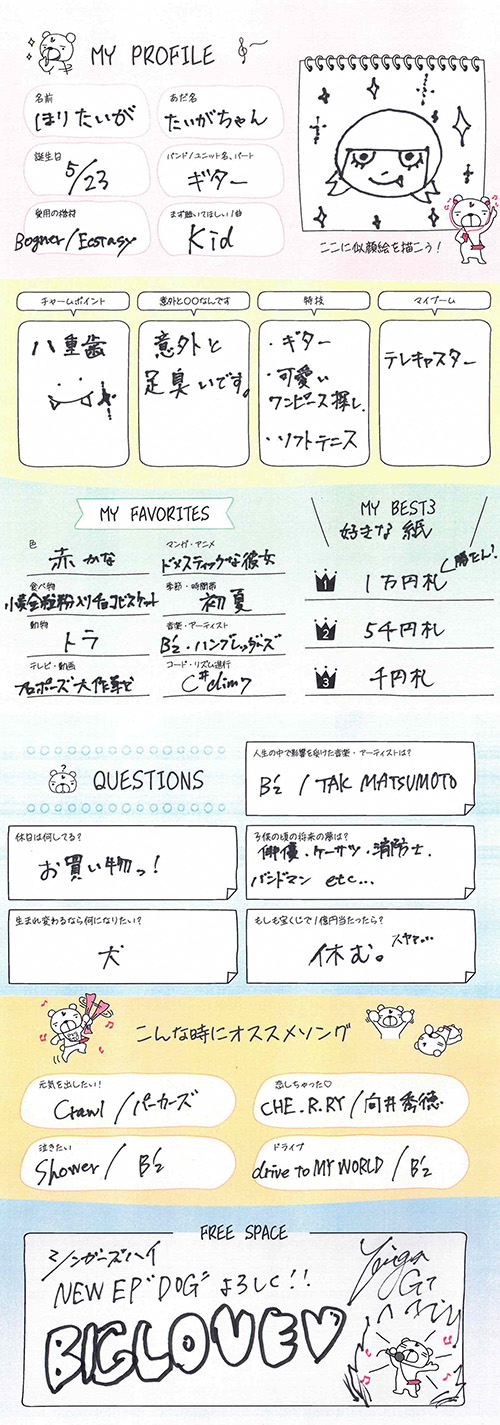 MY PROFILE
名前
ほりたいが
あだ名
たいがちゃん
誕生日
5/23
バンド/ユニット名、パート
ギター
愛用の機材
Bogner/Ecstasy
まず聴いてほしい1曲
Kid
ここに似顔絵を描こう!
チャームポイント
八重歯
意外と〇〇なんです
意外と
足臭いです。
特技
・ギター
・可愛い
ワンピース探し
・ソフトテニス
マイブーム
テレキャスター
MY FAVORITES
色
赤かな
マンガ・アニメ
ドメスティックな彼女
食べ物
小麦全粒粉入りチョコビスケット
季節・時間帯
初夏
動物
トラ
音楽・アーティスト
B'z・ハンブレッダーズ
テレビ・動画
プロポーズ大作戦など
コード・リズム進行
C#dim7
MY BEST3
好きな 紙
1 1万円札
2 5千円札
3 千円札
QUESTIONS
人生の中で影響を受けた音楽・アーティストは?
B'z / TAK MATSUMOTO
休日は何してる?
お買い物っ!
子供の頃の将来の夢は?
俳優・ケーサツ・消防士.
バンドマン etc...
生まれ変わるなら何になりたい?
犬
もしも宝くじで1億円当たったら?
休む。
こんな時にオススメソング
元気を出したい!
Crawl/パーカーズ
恋しちゃった♡
CHE.R.RY/向井秀徳
泣きたい
Shower/B'z
ドライブ
drive to MY WORLD/B'z
FREE SPACE
シンガーズハイ
NEW EP "DOG" よろしく!!
BIG LOVE♥
Taiga
Gt